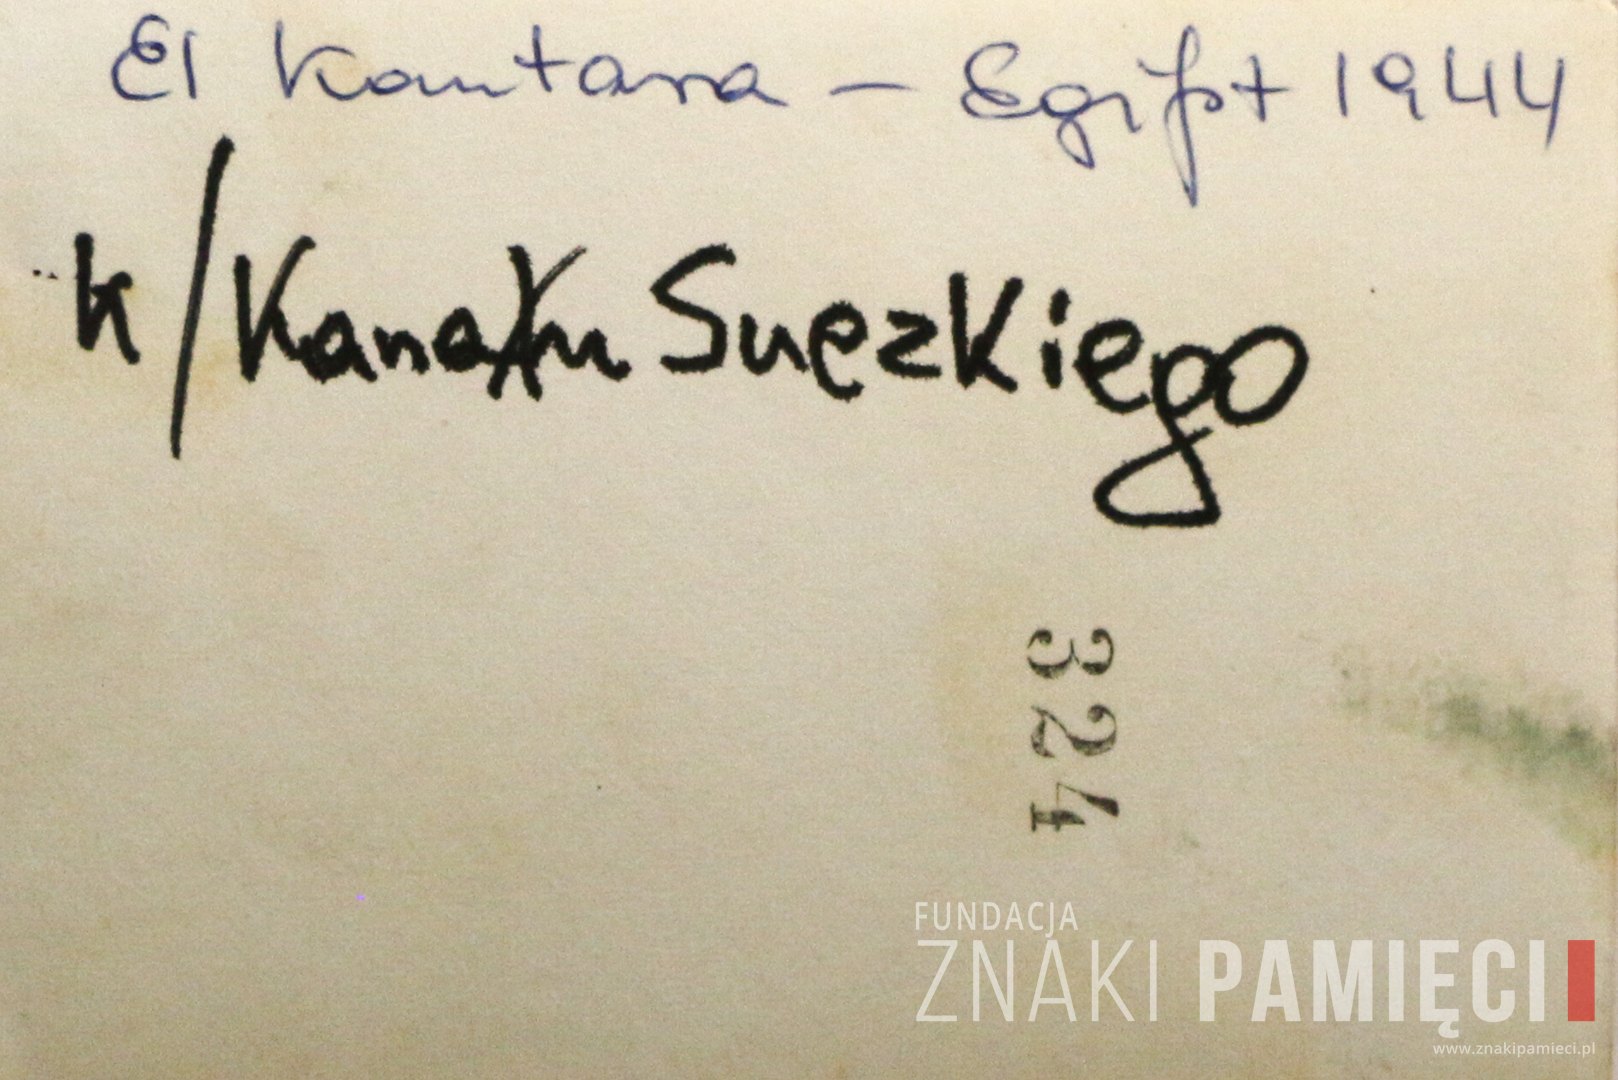 El Kantara – Egipt 1944
k/Kanału Suęzkiego
324
FUNDACJA
ZNAKI PAMIĘCI
www.znakipamieci.pl